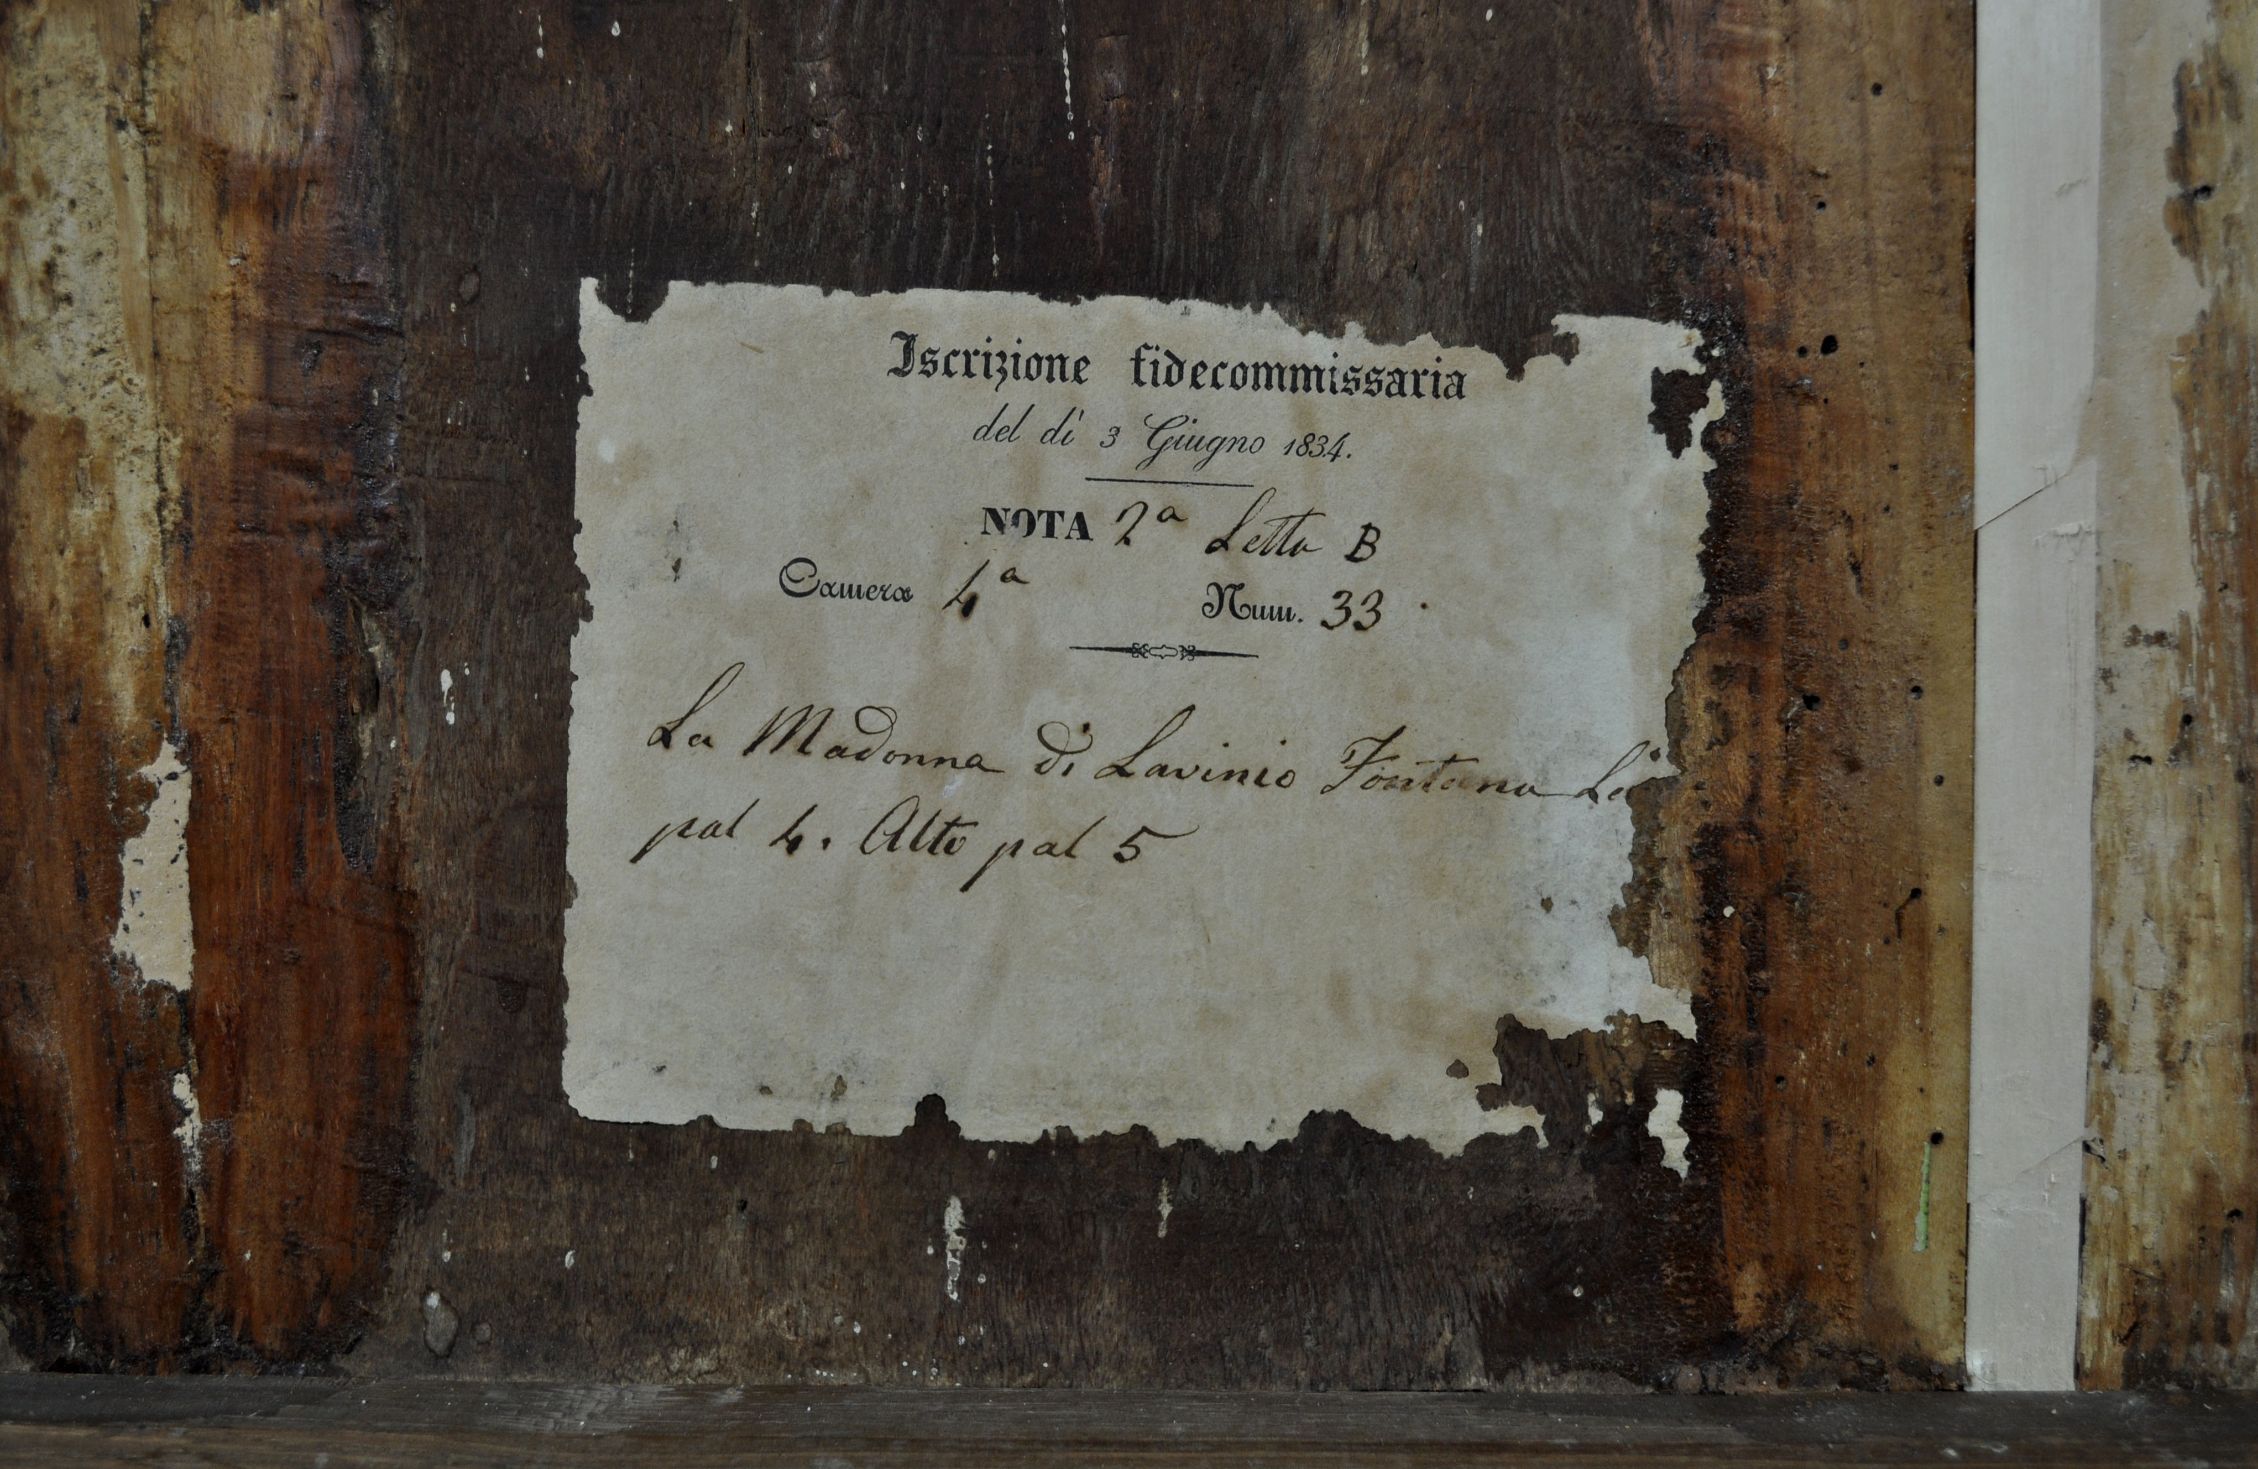 Iscrizione fidecommissaria
del dì 3 Giugno 1834.
NOTA 2ª Letta B
Camera 4ª Num. 33
La Madonna di Lavinio Fontana
pal 4. Alto pal 5